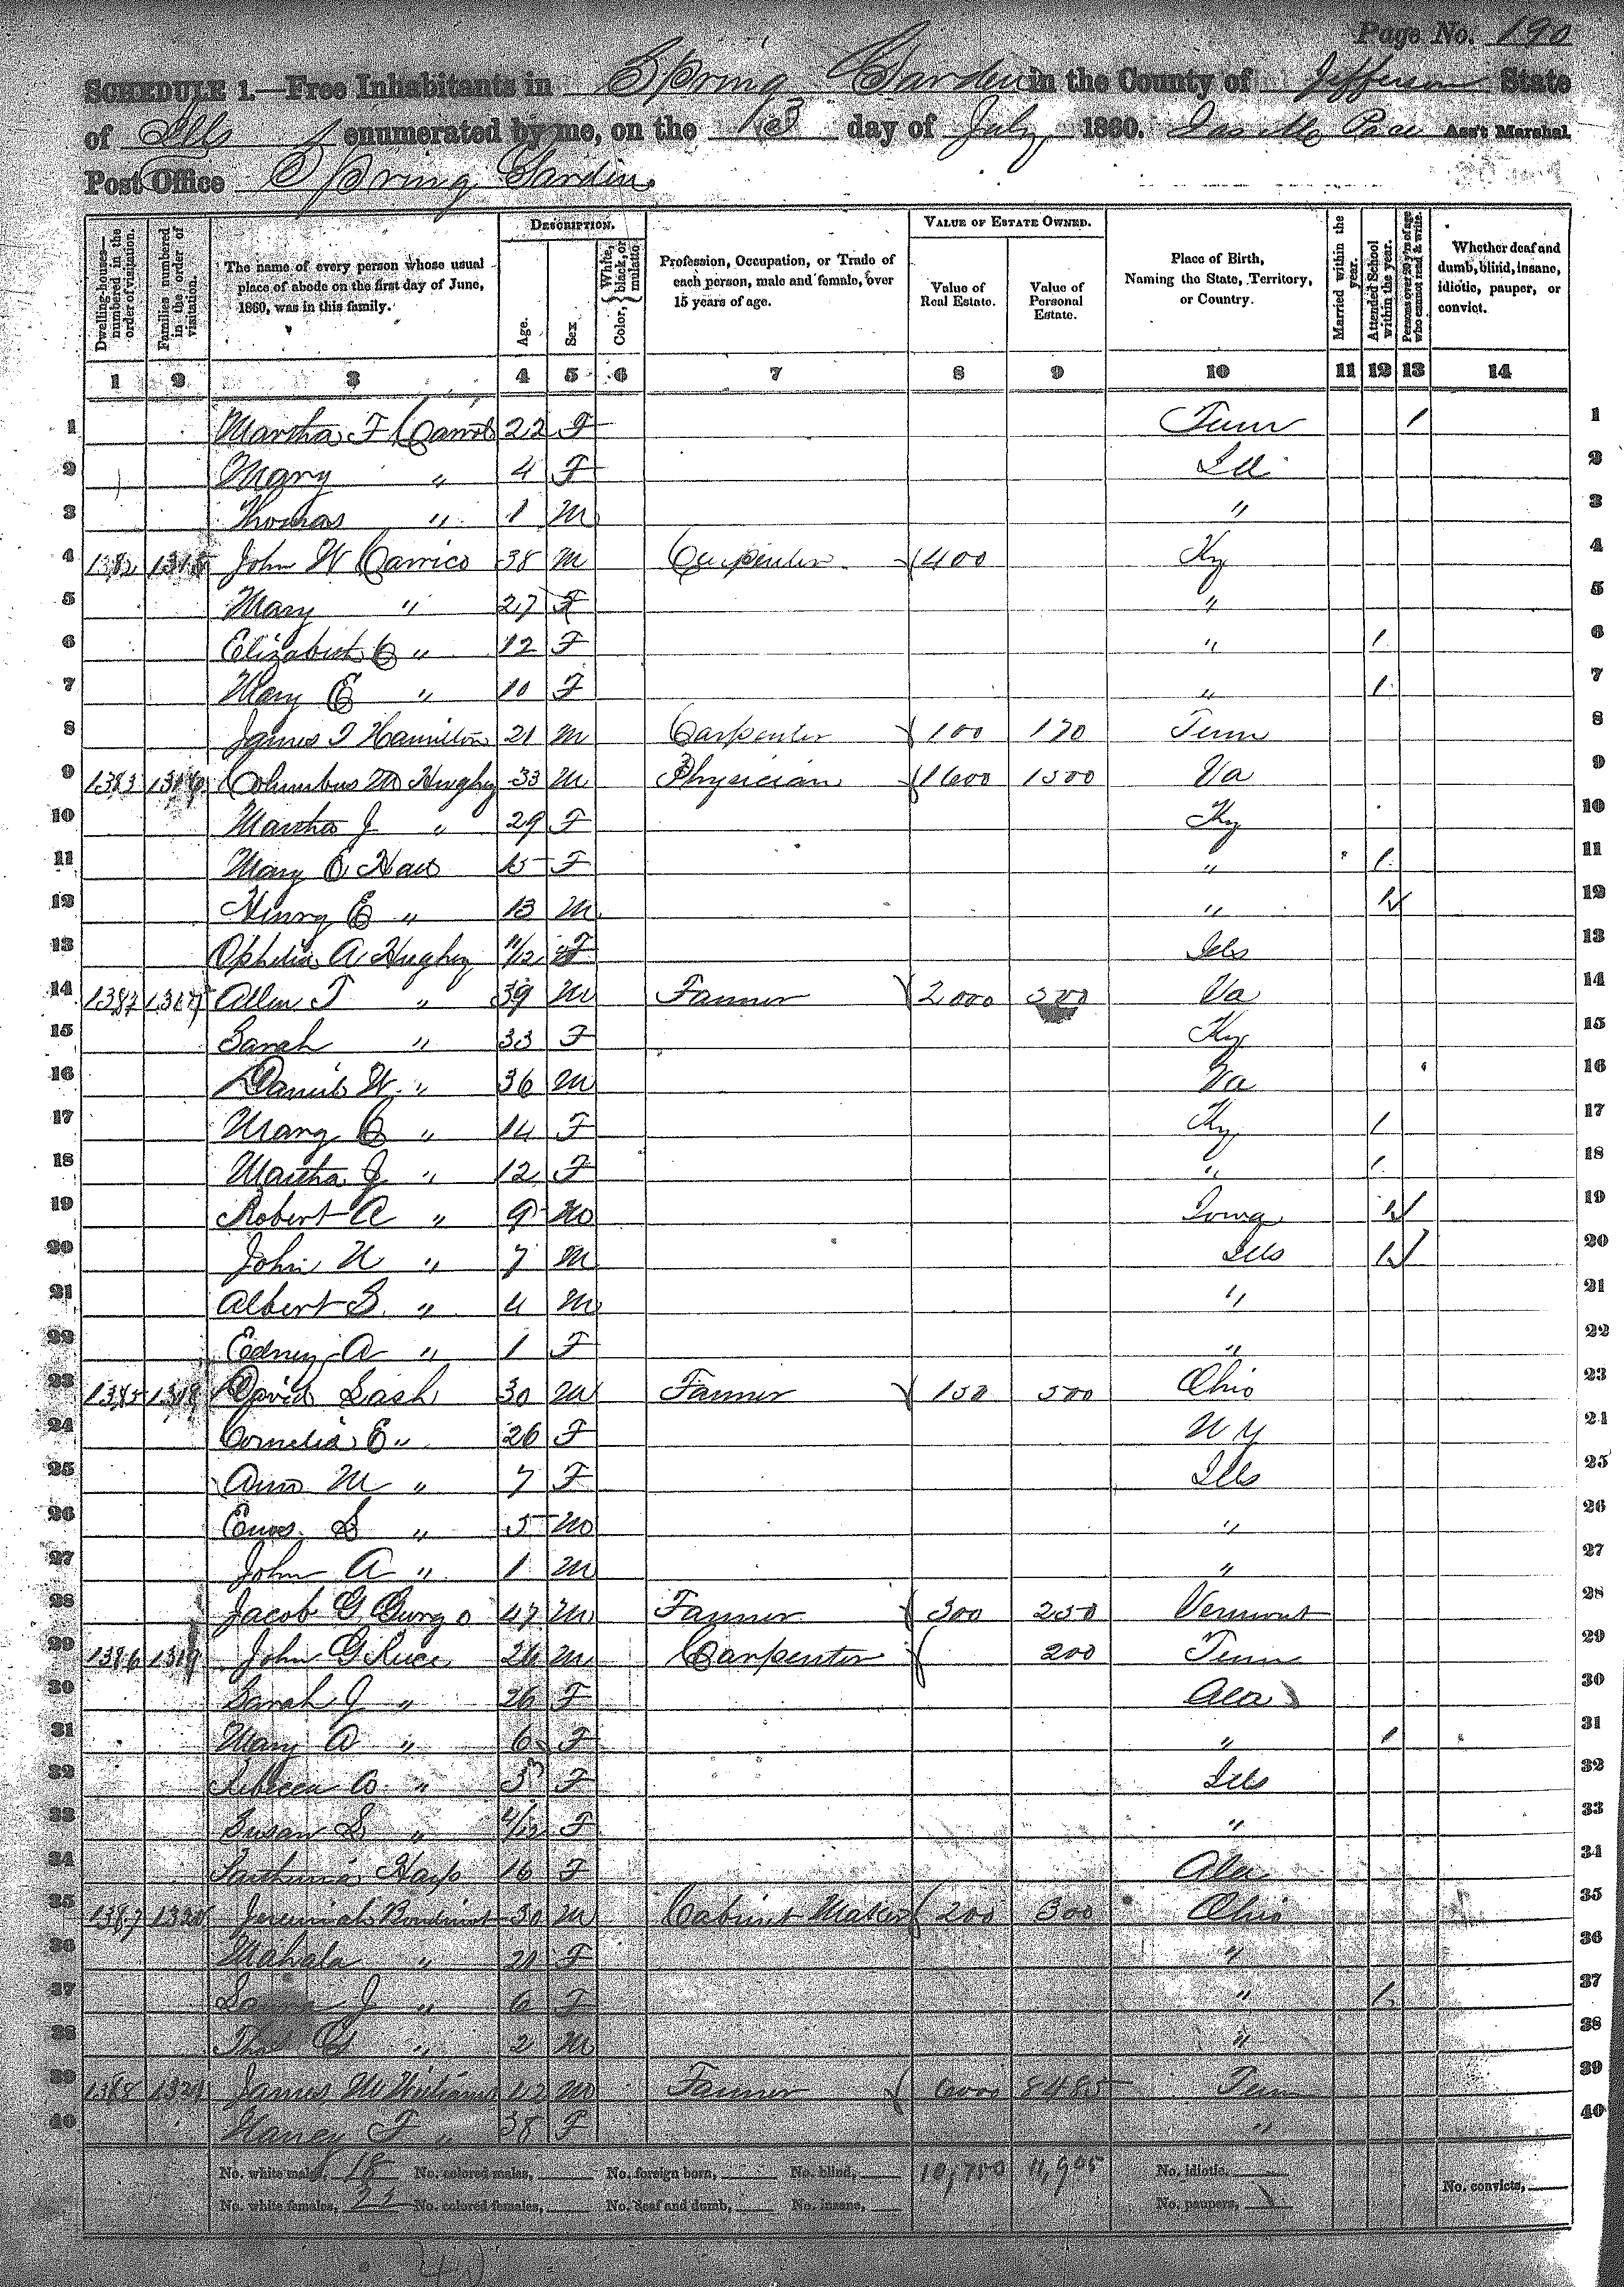 Page No. 190
SCHEDULE 1.—Free Inhabitants in Spring Garden in the County of Jefferson State
of Ills enumerated by me, on the 13 day of July 1860. Pace Ass't Marshal
Post Office Spring Garden
Dwelling-houses—numbered in the order of visitation.
Families numbered in the order of visitation.
The name of every person whose usual place of abode on the first day of June, 1860, was in this family.
DESCRIPTION.
Age.
Sex
Color, { White, black, or mulatto.
Profession, Occupation, or Trade of each person, male and female, over 15 years of age.
VALUE OF ESTATE OWNED.
Value of Real Estate.
Value of Personal Estate.
Place of Birth, Naming the State, Territory, or Country.
Married within the year.
Attended School within the year.
Persons over 20 y'rs of age who cannot read & write.
Whether deaf and dumb, blind, insane, idiotic, pauper, or convict.
1 2 3 4 5 6 7 8 9 10 11 12 13 14
1 Martha F 22 F Tenn 1 1
2 Mary " 4 F Ill 2
3 Thomas " 1 M " 3
4 1382 1315 John W Carrico 38 M Carpenter 400 Ky 4
5 Mary " 27 F " 5
6 Elizabeth C " 12 F " 1 6
7 Mary E " 10 F " 1 7
8 James I Hamilton 21 M Carpenter 100 170 Tenn 8
9 1383 1316 Columbus M Hughey 33 M Physician 1600 1500 Va 9
10 Martha J " 29 F Ky 10
11 Mary E 15 F " 1 11
12 Henry E " 13 M " 1 12
13 Ophelia A Hughey 11/12 F Ills 13
14 1317 Allen T " 39 M Farmer 2000 500 Va 14
15 Sarah " 33 F Ky 15
16 Daniel W " 36 M Va 16
17 Mary C " 14 F Ky 1 17
18 Martha J " 12 F " 1 18
19 Robert A " 9 M Iowa 1 19
20 John N " 7 M Ills 1 20
21 Albert S " 4 M " 21
22 Edney A " 1 F " 22
23 1385 1318 David Lash 30 M Farmer 150 500 Ohio 23
24 Cornelia E " 26 F N Y 24
25 Ann M " 7 F Ills 25
26 Enos S " 5 M " 26
27 John A " 1 M " 27
28 Jacob G 47 M Farmer 300 250 Vermont 28
29 1386 1319 John G Rice 26 M Carpenter 200 Tenn 29
30 Sarah J " 26 F Ala 30
31 Mary A " 6 F " 1 31
32 Rebecca " 3 F Ills 32
33 Susan S " 4/12 F " 33
34 16 F Ala 34
35 1387 1320 Jeremiah Boudinot 30 M Cabinet Maker 200 300 Ohio 35
36 Mahala " F " 36
37 J " 6 F " 1 37
38 Thos " 2 M " 38
39 1388 1321 James M Williams 42 M Farmer 6000 8485 Tenn 39
40 Nancy F " 38 F " 40
No. white males, 18 No. colored males, No. foreign born, No. blind, 10,750 11,905 No. idiotic, No. convicts,
No. white females, 22 No. colored females, No. deaf and dumb, No. insane, No. paupers,